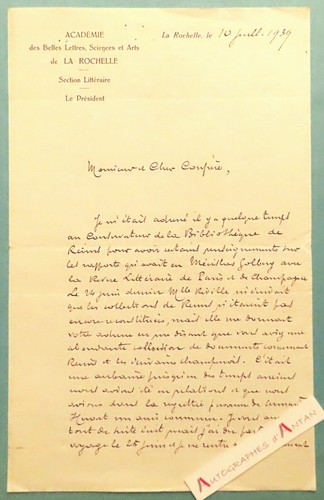 ACADÉMIE
des Belles Lettres, Sciences et Arts
de LA ROCHELLE
Section Littéraire
Le Président
La Rochelle, le 10 juill. 1939
Monsieur et Cher Confrère,
Je m'étais adressé il y a quelque temps
au Conservateur de la Bibliothèque de
Reims pour avoir certains renseignements sur
les rapports qu'avait eu Golberg avec
la Revue Littéraire de Paris et de Champagne
Le 14 juin dernier Mlle m'écrivait
que les collections de Reims n'étaient pas
encore reconstituées, mais elle me donnait
votre adresse en me disant que vous aviez une
abondante collection de documents concernant
Reims et les écrivains champenois. C'était
une aubaine puisqu'au temps anciens
nous avions été en relations et que nous
avions dans la personne de
un ami commun. Je vous
tout de suite mais j'ai du
voyage le 26 juin et je ne rentre
AUTOGRAPHES D'ANTAN